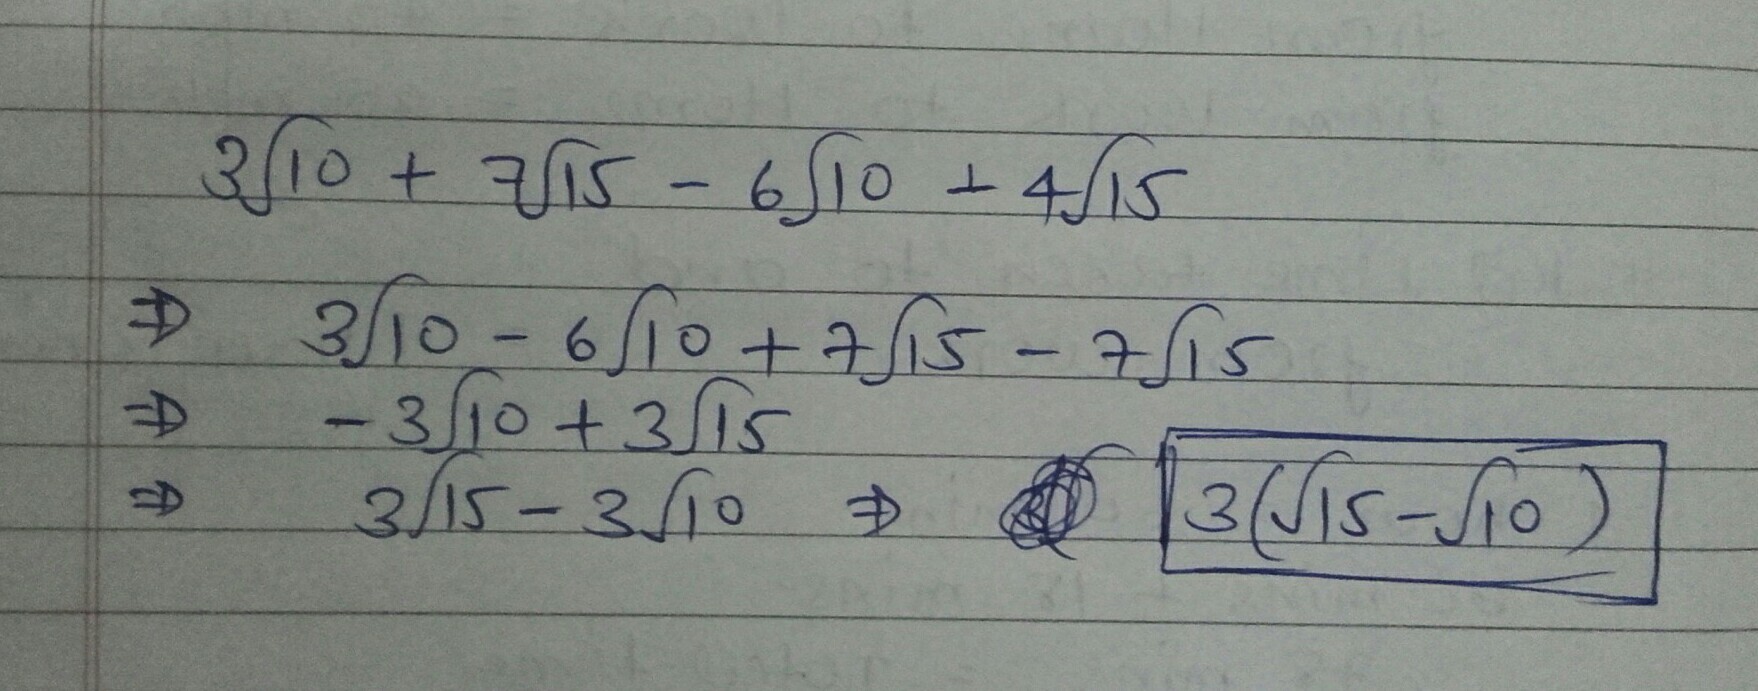 3√10 + 7√15 - 6√10 + 4√15
⇒ 3√10 - 6√10 + 7√15 - 7√15
⇒ -3√10 + 3√15
⇒ 3√15 - 3√10 ⇒ 3(√15 - √10)